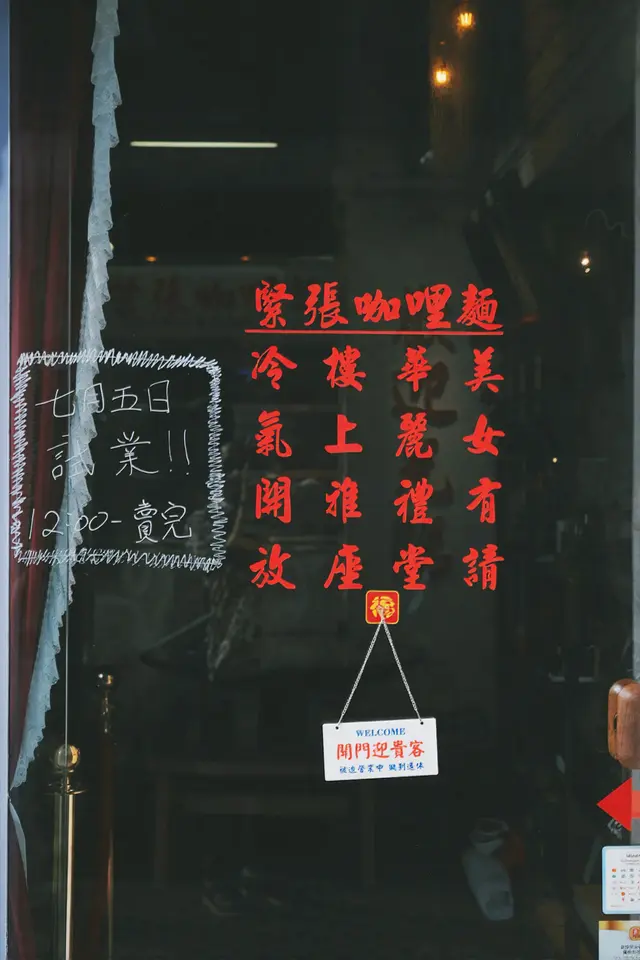 緊張咖哩麵
美女有請
華麗禮堂
樓上雅座
冷氣開放
七月五日
試業!!
12:00-賣完
福
WELCOME
開門迎貴客
被迫營業中 做到退休